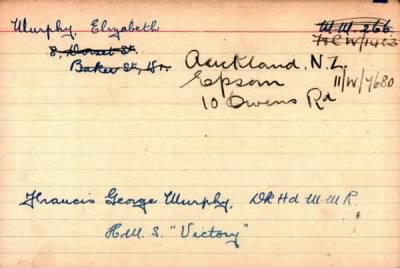 Murphy, Elizabeth
M.M. 266
N.C.W/1413
8, Dorset St.
Baker St, W.
Auckland. N.Z.
11/W/7680
Epsom
10 Owens Rd
Francis George Murphy. Dk Hd M M R.
H.M.S. "Victory"